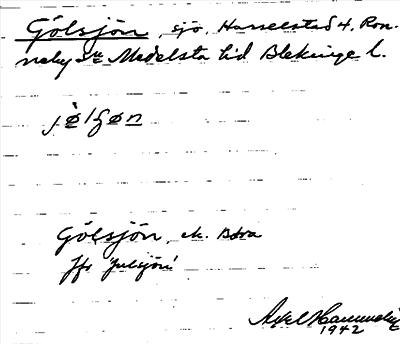 Gölsjön, sjö, Hasselstad 4, Ron-
neby sn Medelsta hd Blekinge l.
jø̀lʃøn
Gölsjön, ek. Bara
Jfr Julsjön
Axel
1942